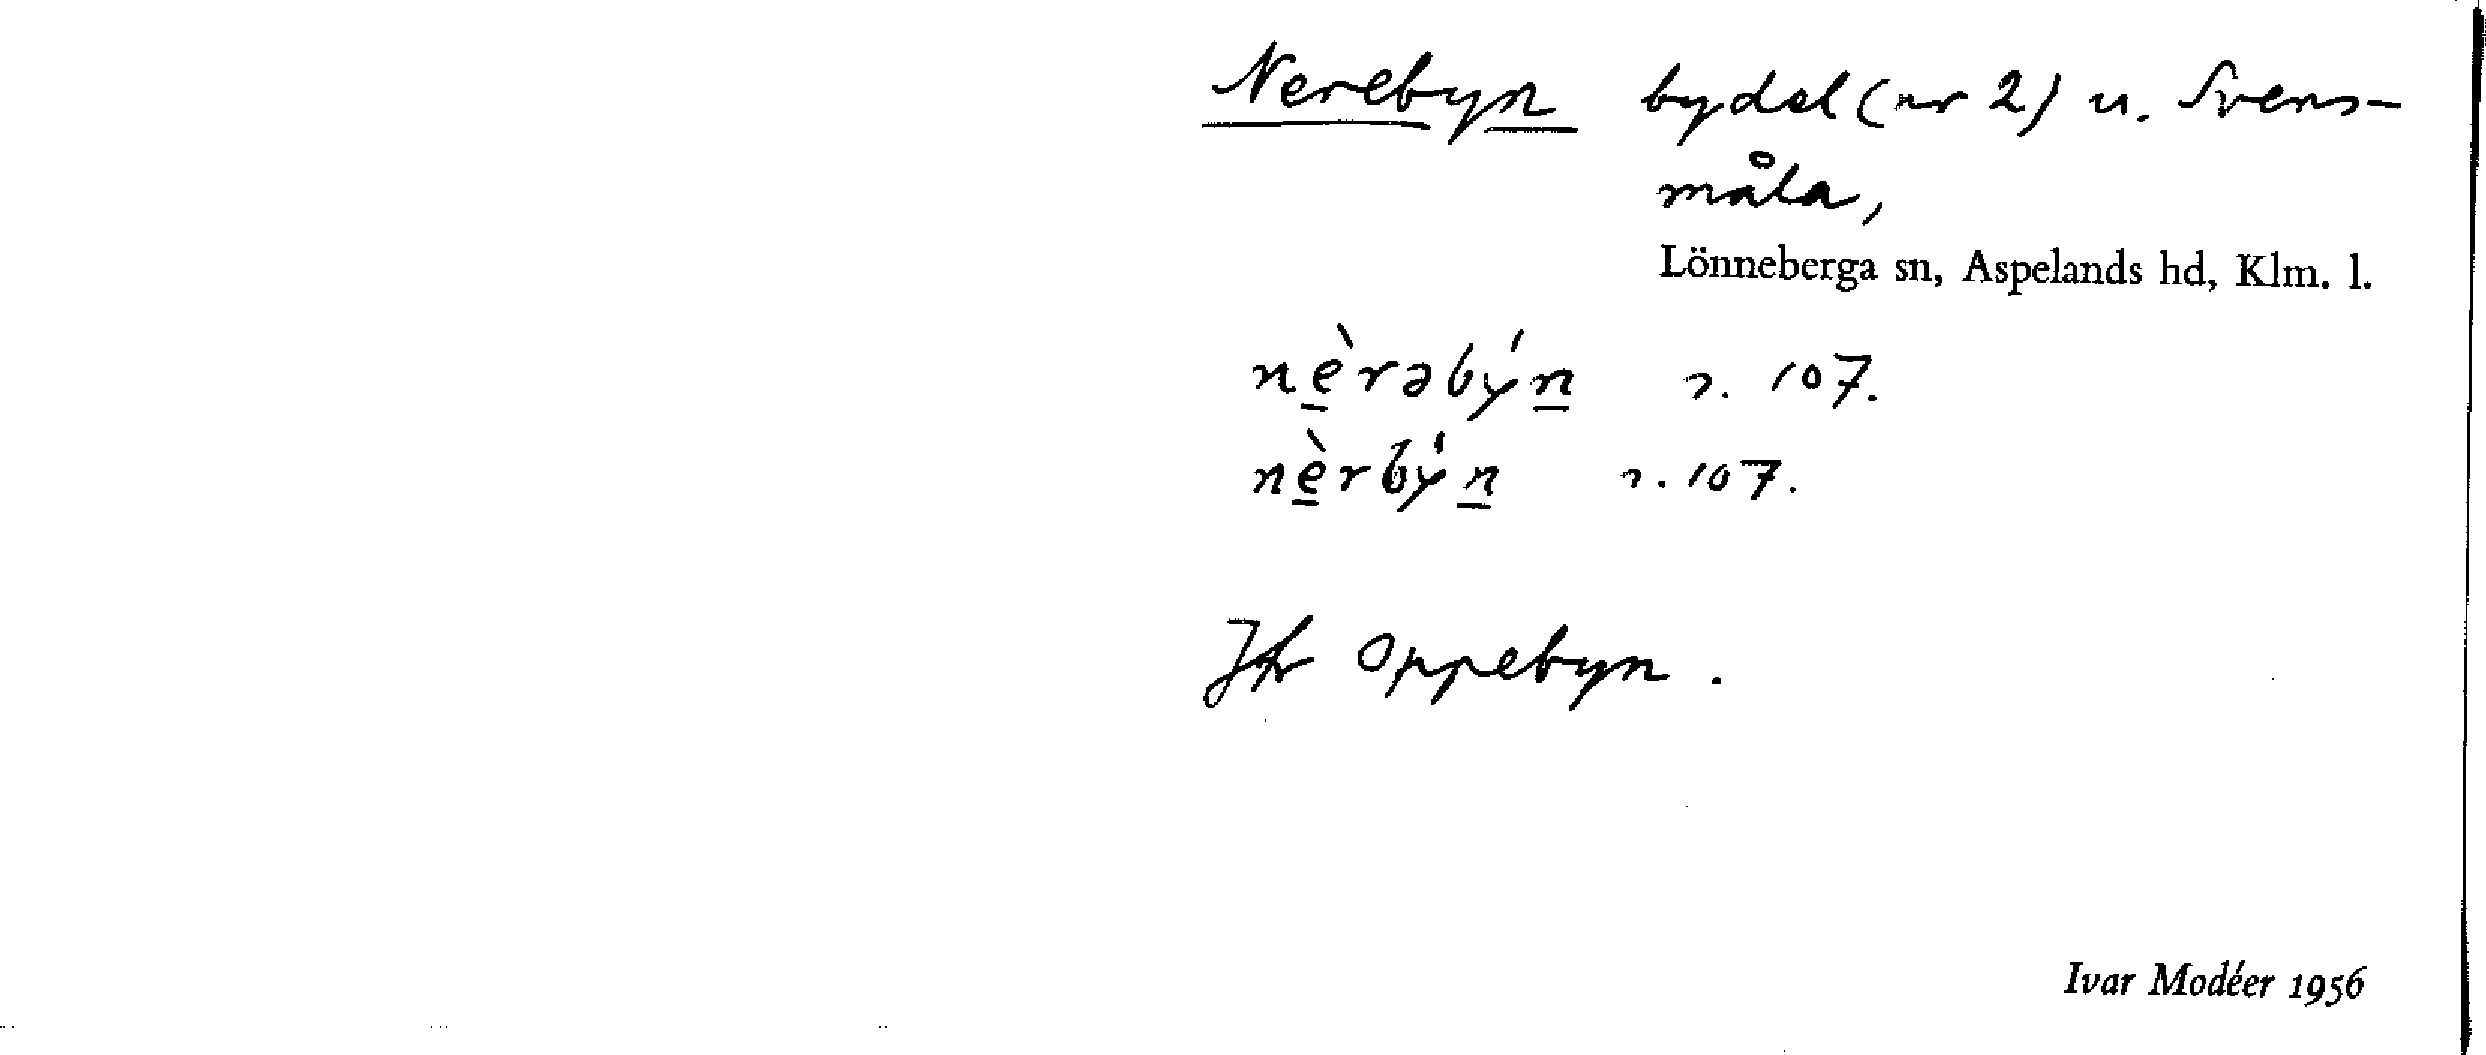 Nerebyn bydel (nr 2) u. Svens-
måla,
Lönneberga sn, Aspelands hd, Klm. l.
nè̠rəbýn̠ 107.
nè̠rbýn̠ 107.
Jfr Oppebyn.
Ivar Modéer 1956